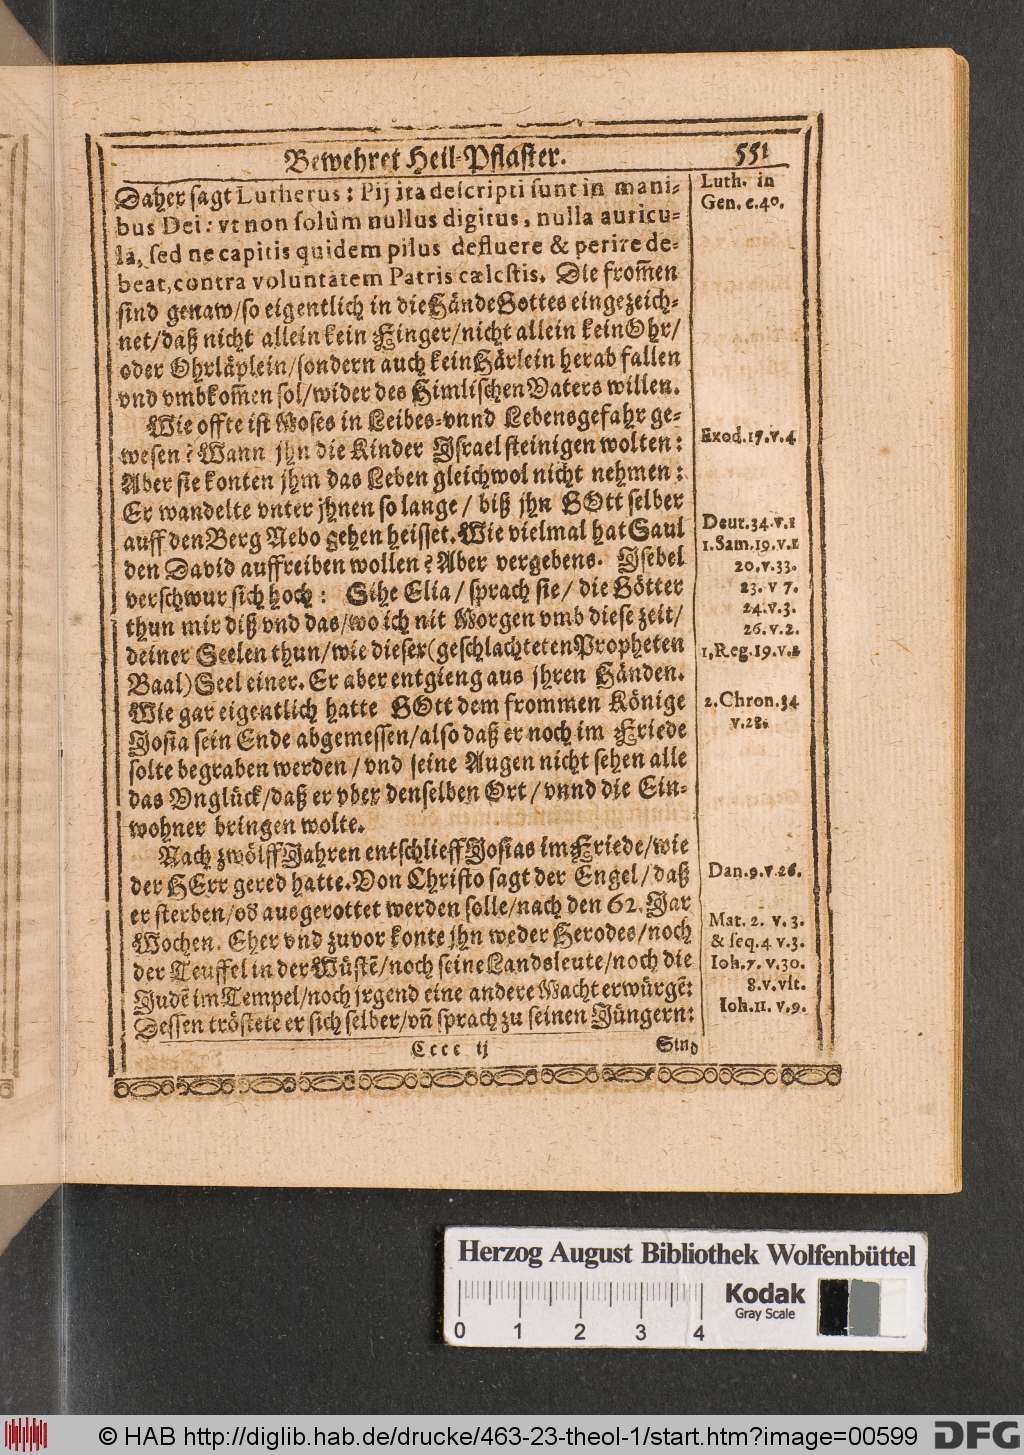 Bewehret Heil-Pflaster. 551
Daher sagt Lutherus: Pij ita descripti sunt in mani-
bus Dei: vt non solùm nullus digitus, nulla auricu-
la, sed ne capitis quidem pilus defluere & perire de-
beat, contra voluntatem Patris cælestis. Die from̃en
sind genaw/so eigentlich in die Hände Gottes eingezeich-
net/daß nicht allein kein Finger/nicht allein kein Ohr/
oder Ohrläplein/sondern auch kein Härlein herab fallen
vnd vmbkom̃en sol/wider des Himlischen Vaters willen.
Wie offte ist Moses in Leibes-vnnd Lebensgefahr ge-
wesen? Wann jhn die Kinder Israel steinigen wolten:
Aber sie konten jhm das Leben gleichwol nicht nehmen:
Er wandelte vnter jhnen so lange / biß jhn GOtt selber
auff den Berg Nebo gehen heisset. Wie vielmal hat Saul
den David auffreiben wollen? Aber vergebens. Isebel
verschwur sich hoch: Sihe Elia / sprach sie / die Götter
thun mir diß vnd das/wo ich nit Morgen vmb diese zeit/
deiner Seelen thun/wie dieser (geschlachteten Propheten
Baal) Seel einer. Er aber entgieng aus jhren Händen.
Wie gar eigentlich hatte GOtt dem frommen Könige
Josia sein Ende abgemessen/also daß er noch im Friede
solte begraben werden / vnd seine Augen nicht sehen alle
das Vnglück/daß er vber denselben Ort / vnnd die Ein-
wohner bringen wolte.
Nach zwölff Jahren entschlieff Josias im Friede/wie
der HErr gered hatte. Von Christo sagt der Engel / daß
er sterben/vñ ausgerottet werden solle/nach den 62. Jar
Wochen. Eher vnd zuvor konte jhn weder Herodes/noch
der Teuffel in der Wüstẽ/noch seine Landsleute/noch die
Judẽ im Tempel/noch jrgend eine andere Macht erwürgẽ:
Dessen tröstete er sich selber/vñ sprach zu seinen Jüngern:
Cccc ij Sind
Luth. in
Gen. c. 40.
Exod. 17. v. 4
Deut. 34. v. 1
1. Sam. 19. v. 1
20. v. 33.
23. v 7.
24. v. 3.
26. v. 2.
1. Reg. 19. v. 2
2. Chron. 34
v. 28.
Dan. 9. v 26.
Mat. 2. v. 3.
& seq. 4 v. 3.
Ioh. 7. v. 30.
8. v. vlt.
Ioh. 11. v. 9.
Herzog August Bibliothek Wolfenbüttel
Kodak
Gray Scale
0 1 2 3 4
© HAB http://diglib.hab.de/drucke/463-23-theol-1/start.htm?image=00599
DFG